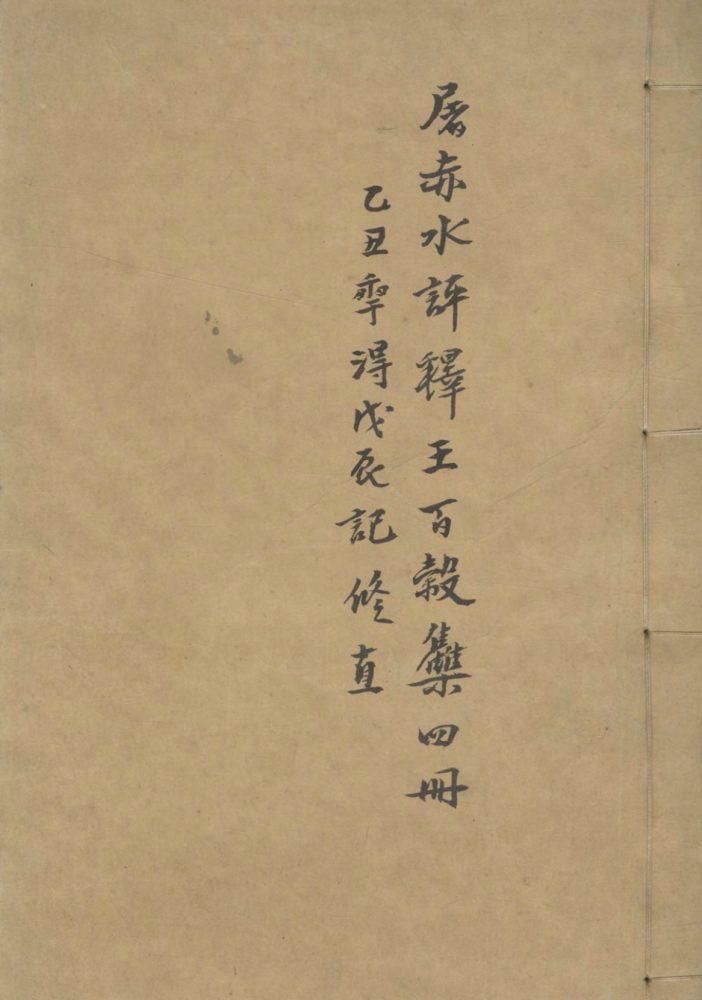 屠赤水評釋王百穀雧四冊
乙丑
得戊辰記修直